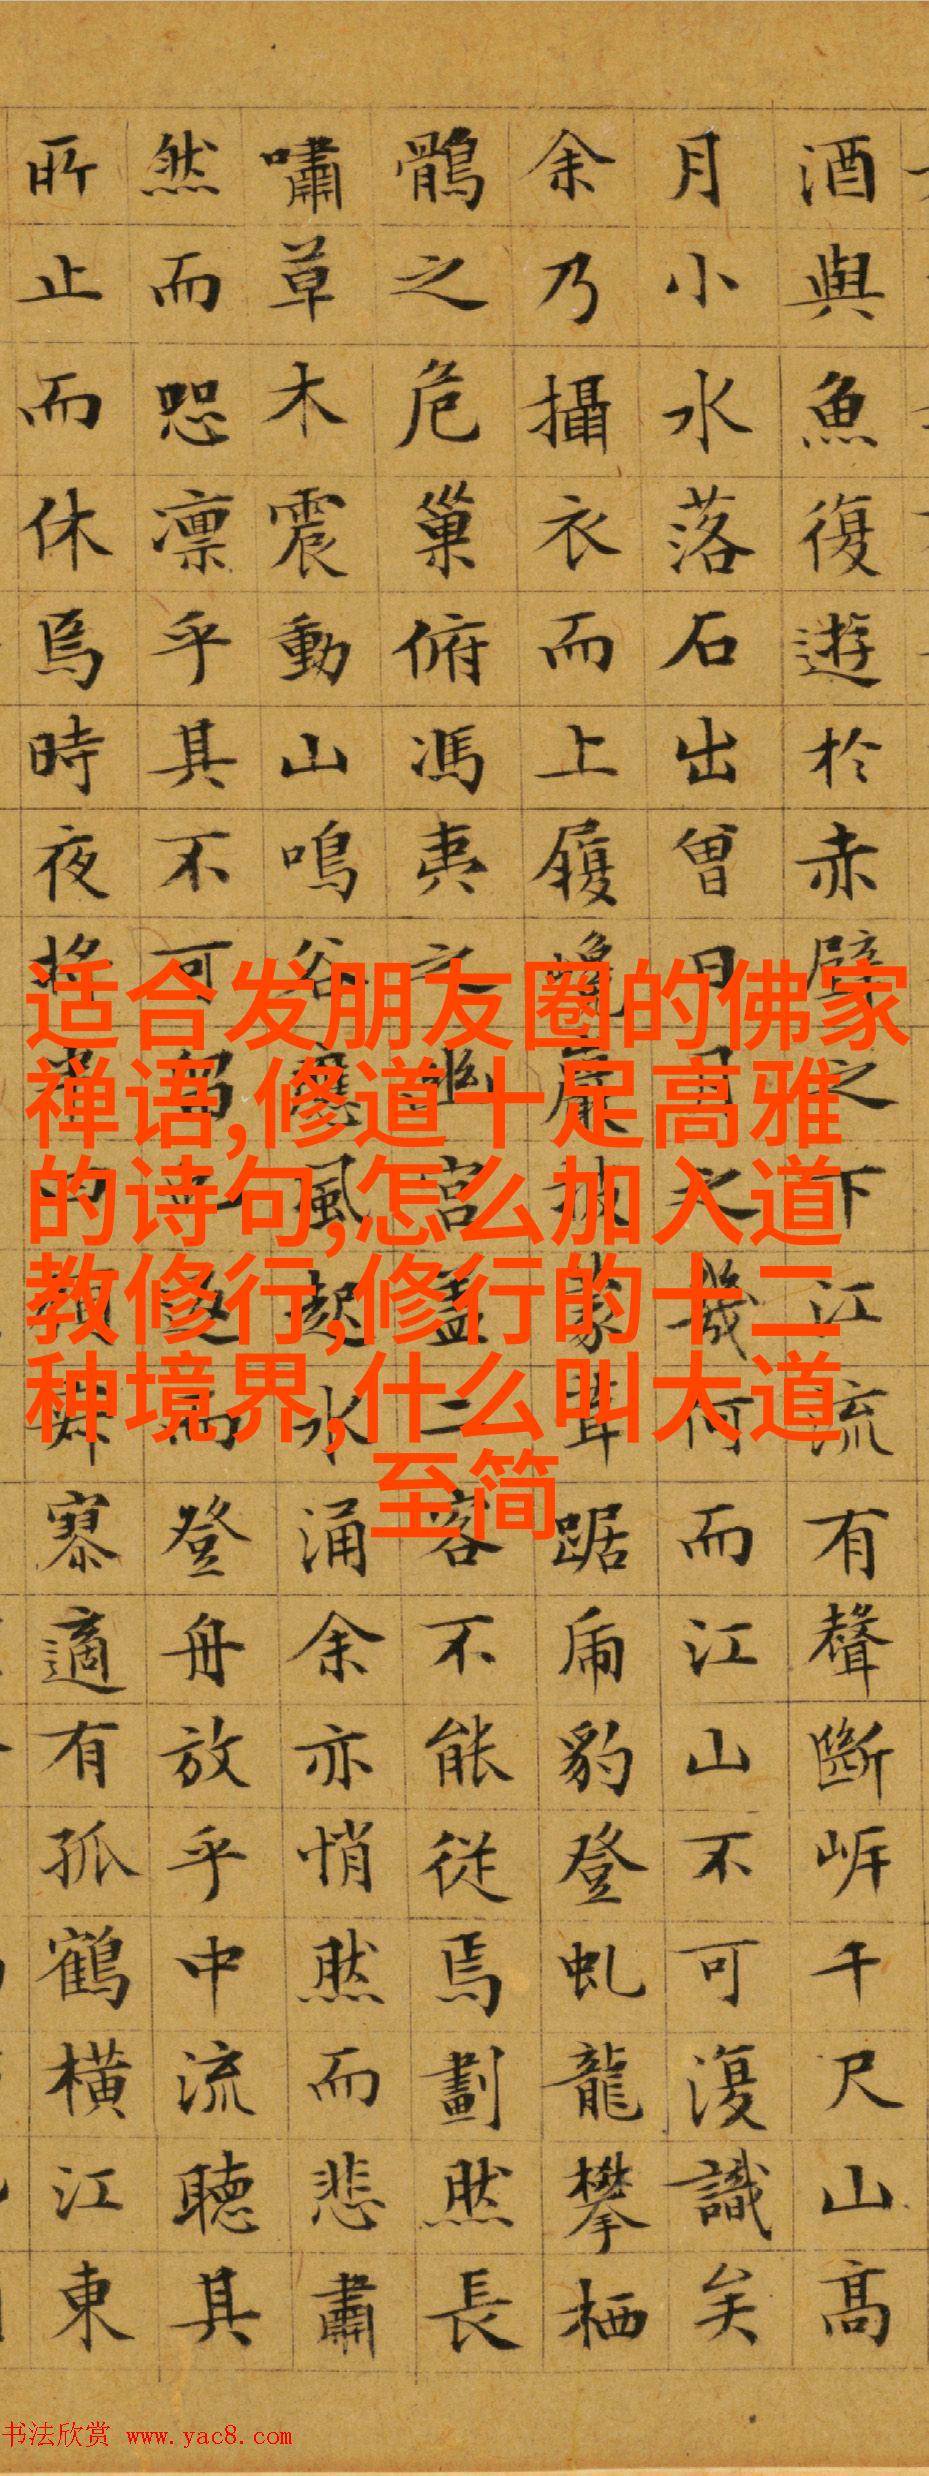 酒與魚復遊於赤壁之下江流有聲斷岸千尺山高
月小水落石出曾日月之幾何而江山不可復識矣
余乃攝衣而上履巉巖披蒙茸踞虎豹登虬龍攀栖
鶻之危巢俯馮夷之幽宮蓋二客不能從焉劃然長
嘯草木震動山鳴谷應風起水涌余亦悄然而悲肅
然而恐凛乎其不可留也返而登舟放乎中流聽其
所止而休焉時夜將半四顧寂寥適有孤鶴橫江東
适合发朋友圈的佛家
禅语,修道十足高雅
的诗句,怎么加入道
教修行,修行的十二
种境界,什么叫大道
至简
书法欣赏 www.yac8.com